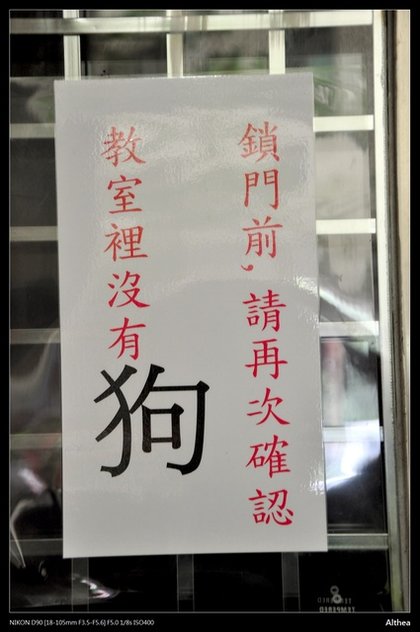 鎖門前,請再次確認
教室裡沒有狗
TEMPERED
NIKON D90 [18-105mm F3.5-F5.6] F5.0 1/8s ISO400
Althea